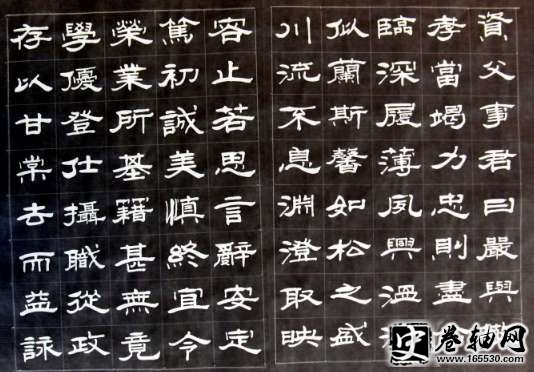 資父事君曰嚴與
孝當竭力忠則盡
臨深履薄夙興溫
似蘭斯馨如松之盛
川流不息淵澄取映
容止若思言辭安定
篤初誠美慎終宜令
榮業所基籍甚無竟
學優登仕攝職從政
存以甘棠去而益詠
史 卷轴网
www.165530.com